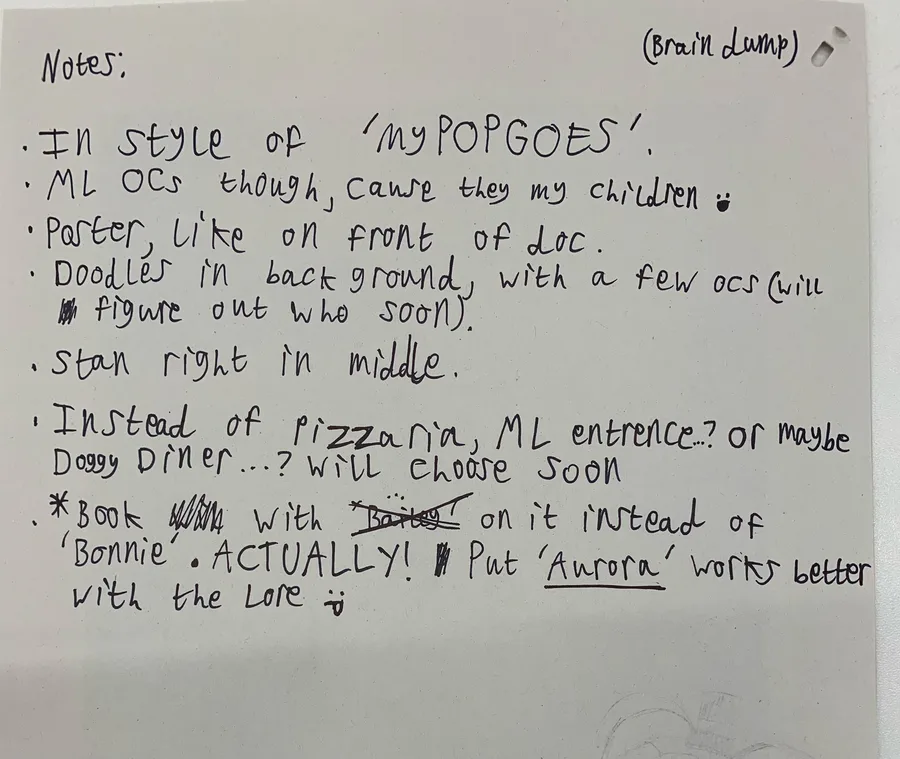 (Brain dump)
Notes:
• In style of 'myPOPGOES'.
• ML OCs though, cause they my children :D
• Poster, like on front of doc.
• Doodles in background, with a few ocs (will
figure out who soon).
• Stan right in middle.
• Instead of Pizzaria, ML entrence..? or maybe
Doggy Diner...? will choose soon
• *Book with 'Bailey' on it instead of
'Bonnie'. ACTUALLY! Put 'Aurora' works better
with the Lore :P